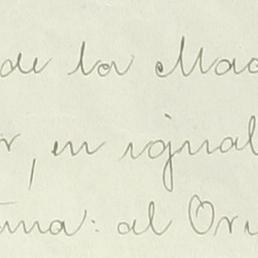 de la Mad
r, en igual
ina: al Ori